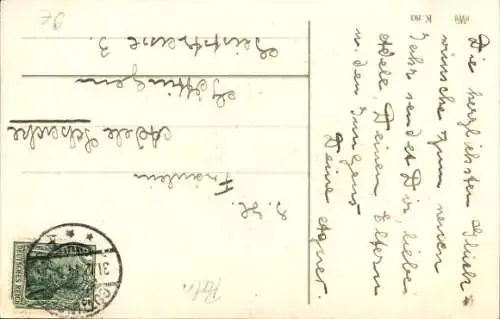 Die herzlichsten Glück-
wünsche zum neuen
Jahr sendet Dir, liebe
Adele, Deinen Eltern
u. den Jungens
Deine Agnes.
S. H.
Fräulein
Adele
Göttingen
3.
HWB
K. 193
DEUTSCHES REICH
31.12.